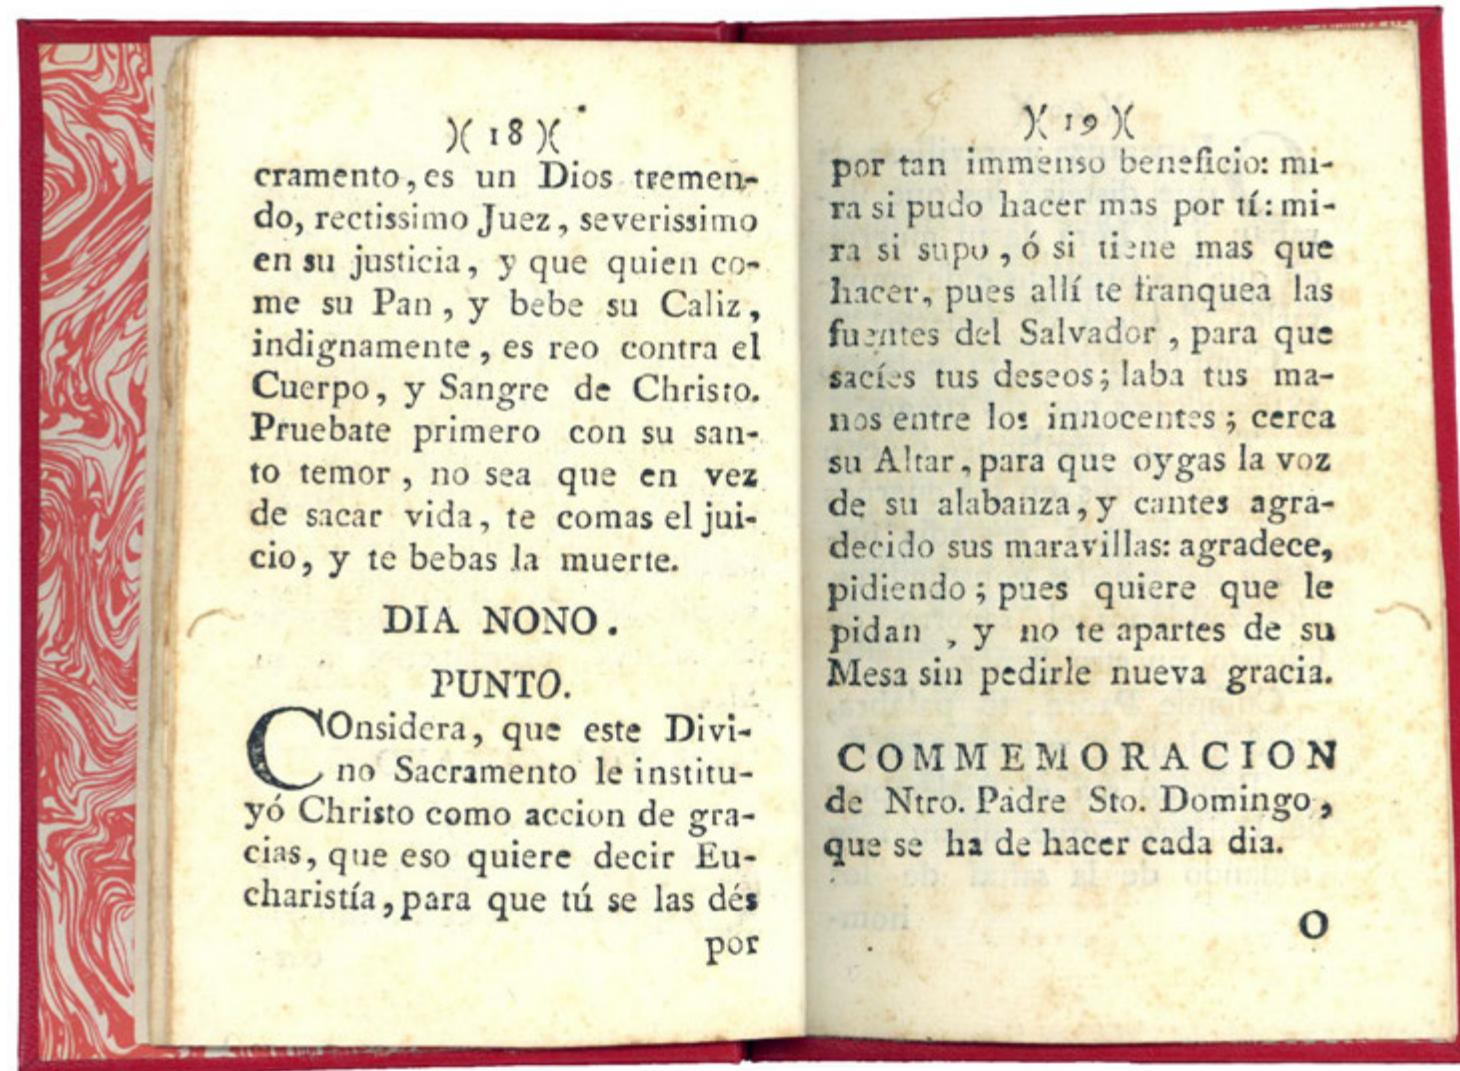 )( 18 )(
cramento, es un Dios tremen-
do, rectissimo Juez, severissimo
en su justicia, y que quien co-
me su Pan, y bebe su Caliz,
indignamente, es reo contra el
Cuerpo, y Sangre de Christo.
Pruebate primero con su san-
to temor, no sea que en vez
de sacar vida, te comas el jui-
cio, y te bebas la muerte.
DIA NONO.
PUNTO.
COnsidera, que este Divi-
no Sacramento le institu-
yó Christo como accion de gra-
cias, que eso quiere decir Eu-
charistía, para que tú se las dés
por
)( 19 )(
por tan immenso beneficio: mi-
ra si pudo hacer mas por tí: mi-
ra si supo, ó si tiene mas que
hacer, pues allí te franquea las
fuentes del Salvador, para que
sacíes tus deseos; laba tus ma-
nos entre los innocentes; cerca
su Altar, para que oygas la voz
de su alabanza, y cantes agra-
decido sus maravillas: agradece,
pidiendo; pues quiere que le
pidan, y no te apartes de su
Mesa sin pedirle nueva gracia.
COMMEMORACION
de Ntro. Padre Sto. Domingo,
que se ha de hacer cada dia.
O